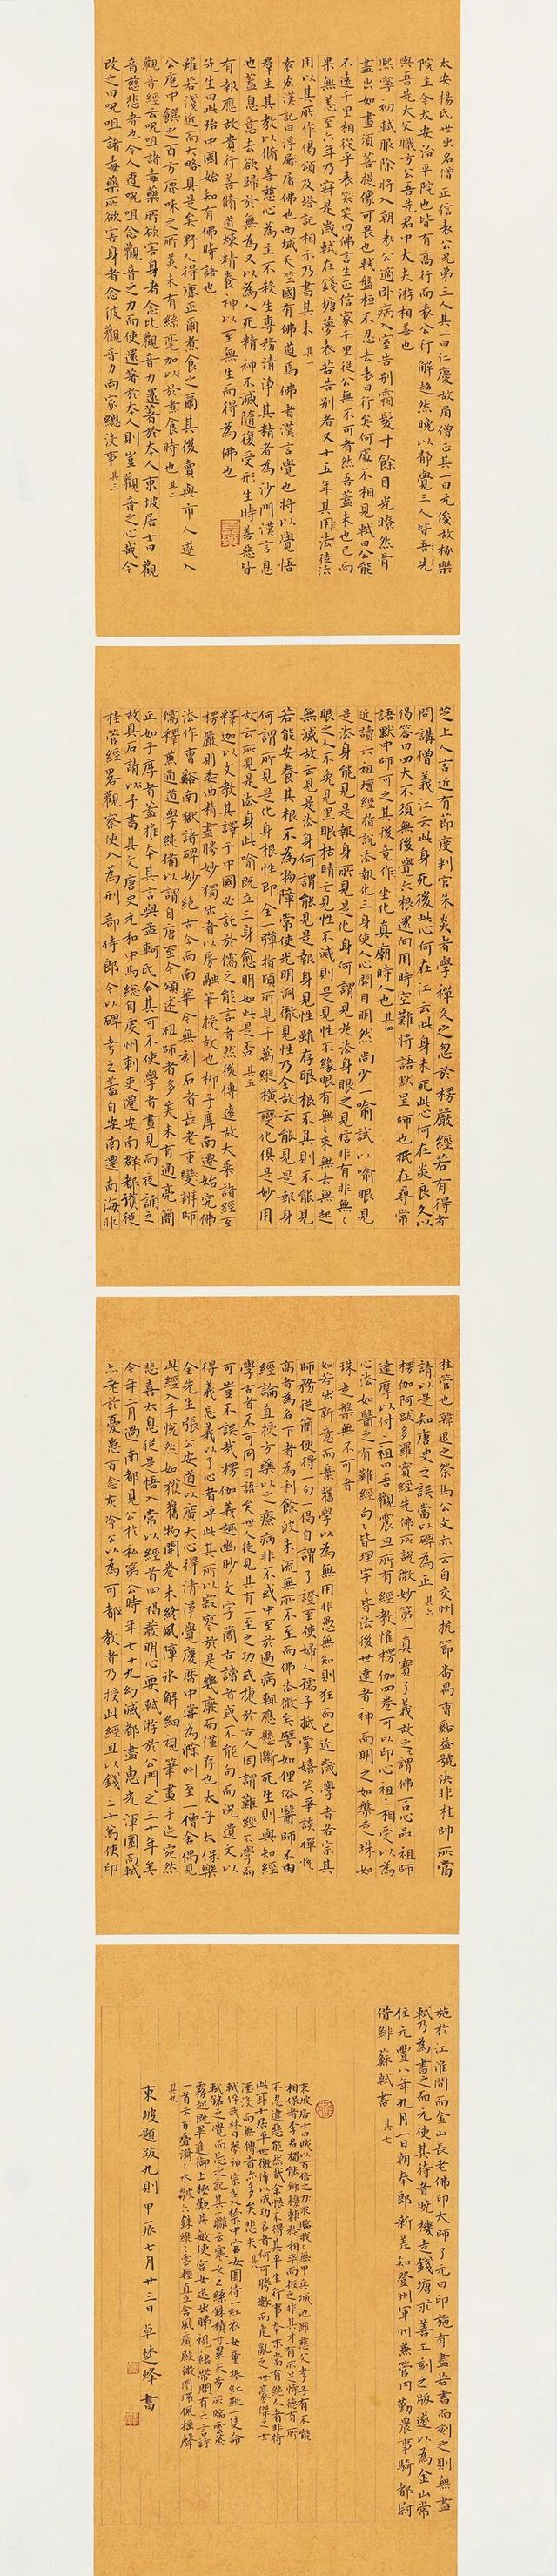 太安楊氏世出名僧正信表公兄弟三人其一曰仁慶故眉僧正其一曰元俊故極樂
院主今太安治平院也皆有高行而表公行解超然晚以靜覺三人皆吾先
與吾先大父職方公吾先君中大夫游相善也
熙寧初軾服除將入朝表公適卧病入室告別霜髮寸餘目光瞭然骨
盡出如畫須菩提像可畏也軾盤桓不忍去表曰行矣何處不相見軾曰公能
不遠千里相從乎表笑曰佛言生正信家千里從公無不可者然吾蓋未也已而
果無恙至六年乃寂是歲軾在錢塘夢表若告別者又十五年其用法徒法
用以其所作偈頌及塔記相示乃書其末 其一
袁宏漢記曰浮屠佛也西域天竺國有佛道焉佛者漢言覺也將以覺悟
羣生其教以脩善慈心為主不殺生專務清淨其精者為沙門漢言息
也蓋息意去欲歸於無為又以為人死精神不滅隨復受形生時善惡皆
有報應故貴行善脩道煉精養神以至無生而得為佛也
先生曰此殆中國始知有佛時語也
雖若淺近而大略具是矣野人得鹿正爾煮食之爾其後賣與市人遂入
公庖中饌之百方鹿味之所美未有絲毫加以於煮食時也 其二
觀音經云呪咀諸毒藥所欲害身者念彼觀音力還著於本人東坡居士曰觀
音慈悲者也今人遭呪咀念觀音之力而使還著於本人則豈觀音之心哉今
改之曰呪咀諸毒藥所欲害身者念彼觀音力兩家總沒事 其三
芝上人言近有節度判官朱炎者學禪久之忽於楞嚴經若有得者
問講僧義江云此身死後此心何在江云此身未死此心何在炎良久以
偈答曰四大不須無後覺六根還向用時空難將語默呈師也祇在尋常
語默中師可之其後竟作坐化真廟時人也 其四
近讀六祖壇經指說法報化三身使人心開目明然尚少一喻試以喻眼見
是法身能見是報身所見是化身何謂見是法身眼之見信非有非無
眼之人不免見黑眼枯睛亡見性不滅則是見性不緣眼有無無來無去無起
無滅故云見是法身何謂能見是報身見性雖存眼根不具則不能見
若能安養其根不為物障常使光明洞徹見性乃全故云能見是報身
何謂所見是化身根性既全一彈指頃所見千萬縱橫變化俱是妙用
故云所見是化身此喻既立三身愈明如此是否 其五
釋迦以文教其譯于中國必託於儒之能言者然後傳遠故大乘諸經至
楞嚴則委曲精盡勝妙獨出者以房融筆授故也柳子厚南遷始究佛
法作曹谿南嶽諸碑妙絕古今而南華今無刻石者長老重辯師
儒釋兼通道學純備以謂自唐至今頌述祖師者多矣未有通亮簡
正如子厚者蓋推本其言與孟軻氏合其可不使學者晝見而夜誦之
故具石請以予書其文唐史元和中馬總自虔州刺吏遷安南都護徙
桂管經畧觀察使入為刑部侍郎今以碑考之蓋自安南遷南海非
桂管也韓退之祭馬公文亦云自交州抗節番禺曹谿謚號決非桂帥所當
請以是知唐史之誤當以碑為正 其六
楞伽阿跋多羅寶經先佛所說微妙第一真實了義故謂之佛言心品祖師
達摩以付二祖曰吾觀震旦所有經教惟楞伽四卷可以印心祖祖相受以為
心法如醫之有難經句句皆理字字皆法後世達者神而明之如槃走珠如
珠走槃無不可者
如若出新意而棄舊學以為無用非愚無知則狂而已近歲學者各宗其
師務從簡便得一句一偈自謂了證至使婦人孺子抵掌嬉笑爭談禪悅
高者為名下者為利餘波末流無所不至而佛法微矣譬如俚俗醫師不由
經論直授方藥以之療病非不或中至於遇病輒應懸斷死生則與知經
學古者不可同日語矣世人徒見其有一至之功或捷於古人因謂難經不學而
可豈不誤哉楞伽義趣幽眇文字簡古讀者或不能句而況遺文以
得義忘義以了心者乎此其所以寂寥於是幾廢而僅存也太子太保樂
全先生張公安道以廣大心得清淨覺慶曆中嘗為滁州至一僧舍偶見
此經入手恍然如獲舊物開卷未終夙障冰解細視筆畫手迹宛然
悲喜太息從是悟入常以經首四偈發明心要軾游於公門之三十年矣
今年二月過南都見公於私第公時年七十九幻滅都盡惠光渾圜而軾
亦老於憂患百念灰冷公以為可都教者乃授此經且以錢三十萬使印
施於江淮間而金山長老佛印大師了元曰印施有盡若書而刻之則無盡
軾乃為書之而元使其侍者曉機走錢塘求善工刻之版遂以為金山常
住元豐八年九月一日朝奉郎新差知登州軍州兼管內勸農事騎都尉
借緋蘇軾書 其七
東坡題跋九則甲辰七月廿三日